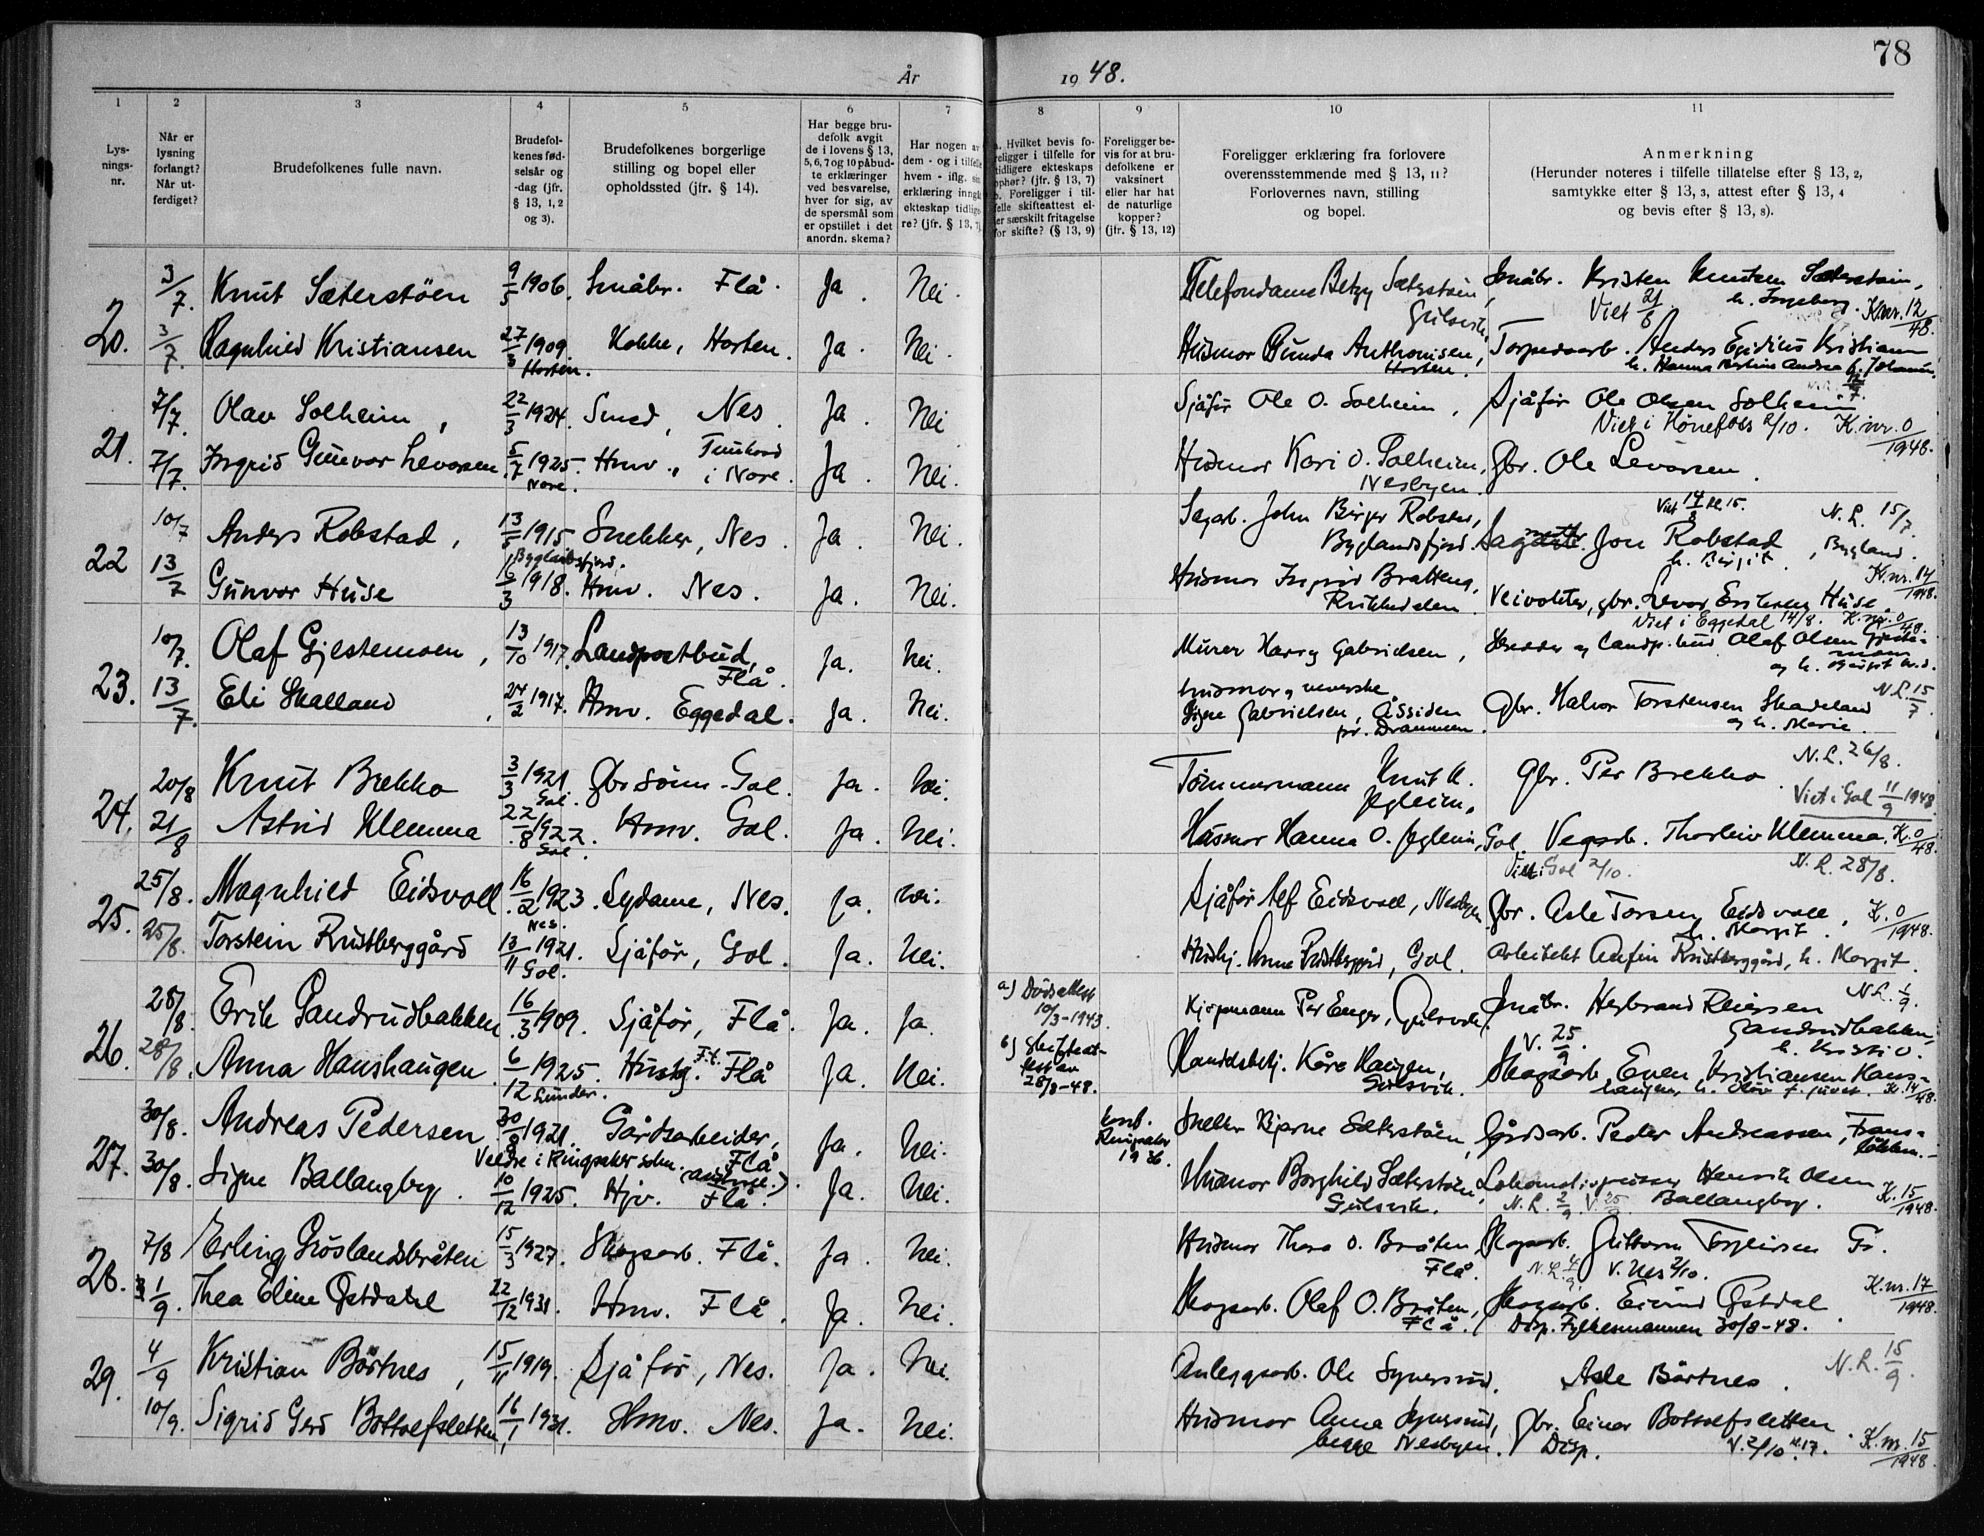 78
År 1948.
1 2 3 4 5 6 7 8 9 10 11
Lys-
nings-
nr.
Når er
lysning
forlangt?
Når ut-
ferdiget?
Brudefolkenes fulle navn.
Brudefol-
kenes fød-
selsår og
-dag (jfr.
§ 13, 1, 2
og 3).
Brudefolkenes borgerlige
stilling og bopel eller
opholdssted (jfr. § 14).
Har begge bru-
defolk avgit
de i lovens § 13,
5, 6, 7 og 10 påbud-
te erklæringer
ved besvarelse,
hver for sig, av
de spørsmål som
er opstillet i det
anordn. skema?
Har nogen av
dem - og i tilfelle
hvem - iflg. sin
erklæring inngå
ekteskap tidlige
re? (jfr. § 13, 7)
a. Hvilket bevis fo-
religger i tilfelle for
tidligere ekteskaps
ophør? (jfr. § 13, 7)
b. Foreligger i til-
felle skifteattest el-
er særskilt fritagelse
for skifte? (§ 13, 9)
Foreligger be-
vis for at bru-
defolkene er
vaksinert
eller har hat
de naturlige
kopper?
(jfr. § 13, 12)
Foreligger erklæring fra forlovere
overensstemmende med § 13, 11?
Forlovernes navn, stilling
og bopel.
Anmerkning
(Herunder noteres i tilfelle tillatelse efter § 13, 2,
samtykke efter § 13, 3, attest efter § 13, 4
og bevis efter § 13, 8).
20. 3/7. Knut Sæterstøen 9/5 1906. Småbr. Flå. Ja. Nei. Telefondame Betzy Sæterstøen, Gulsvik. Småbr. Kristen Knutsen Sæterstøen, h. Ingeborg. Viet 21/8 K.nr. 12/48.
3/7 Ragnhild Kristiansen 27/3 1909. Horten. Kokke, Horten. Ja. Nei. Husmor Gunda Anthonisen, Horten. Torpedoarb. Anders Egidius Kristiansen
21. 7/7. Olav Solheim, 22/3 1924. Smed, Nes. Ja. Nei Sjåfør Ole O. Solheim, Sjåfør Ole Olsen Solheim
Viet i Hønefoss 2/10. K.nr. 0/1948.
7/7. Ingrid Gunvor Levorsen 5/7 1925. Nore. Hmv., i Nore. Ja. Nei. Husmor Kari O. Solheim, Nesbyen. Gbr. Ole Levorsen.
22 10/7 Anders Robstad, 13/5 1915 Byglandsfjord. Snekker, Nes. Ja. Nei. Sagarb. John Birger Robstad, Byglandsfjord. Jon Robstad, h. Birgit, Bygland.
Viet 14/8 kl. 15. N.L. 15/7.
13/7 Gunvor Huse 2/3 1918. Hmv. Nes. Ja. Nei. Husmor Ingrid Bratteng, Veivokter, gbr. Levor Eriksen Huse. K.nr. 14/1948.
Viet i Eggedal 14/8. K.nr. 0/48.
23. 10/7. Olaf Gjestemoen, 13/10 1917. Landpostbud, Flå. Ja. Nei. Murer Harry Gabrielsen, og Landp.bud Olaf Olsen Gjeste-
moen
13/7. Eli Skalland, 24/2 1917. Hmv. Eggedal. Ja. Nei. Husmor og veverske Signe Gabrielsen, Åssiden pr. Drammen. Gbr. Halvor Torstensen Skadeland og h. Marie. N.L. 15/7.
24. 20/8 Knut Brekko 3/3 1921. Gol. Gbr.sønn - Gol. Ja. Nei. Tømmermann Knut K. Jegleim, Gbr. Per Brekko. N.L. 26/8.
Viet i Gol 11/9 1948
21/8 Astrid Klemma 22/8 1922. Gol. Hmv. Gol. Ja. Nei. Husmor Hanna O. Jegleim, Gol. Vegarb. Thorleiv Klemma. K. 0/48.
25. 25/8. Magnhild Eidsvoll 16/2 1923. Nes. Sydame, Nes. Ja. Nei. Sjåfør Alf Eidsvoll, Nesbyen. Gbr. Asle Torsen Eidsvoll, h. Margit.
Viet i Gol 2/10. N.L. 28/8. K. 0/1948.
25/8. Torstein Rustberggård 13/11 1921. Gol. Sjåfør, Gol. Ja. Nei. Hushj. Anna Rustberggård, Gol. Arbeider Anfin Rustberggård, h. Margit.
26. 28/8. Erik Sandrudbakken 16/3 1909. Sjåfør, Flå. Ja. Ja. a) Dødsattest 10/3-1943. Kjøpmann Per Enger, Gulsvik. Småbr. Herbrand Reiersen Sandrudbakken, h. Kristi O. N.L. 1/9.
28/8. Anna Hanshaugen. 6/12 1925. Hushj. F.t. Flå Ja. Nei. b) Skifteat-
test av 28/8-48. Handelsbetj. Kåre Haugen, Gulsvik. V. 25/9. Skogsarb. Even Kristiansen Hans-
haugen, K. 14/48.
27. 30/8. Andreas Pedersen 30/8 1921. Veldre i Ringsaker. Gårdsarbeider, Flå Ja. Nei. Konf. Ringsaker 1936. Snekker Bjarne Sæterstøen, Gårdsarb. Peder Andreassen,
30/8. Signe Ballangby. 10/12 1925. Hjv. Flå. Ja. Nei. Husmor Borghild Sæterstøen, Gulsvik. Lokomotivpusser Henrik Olsen Ballangby. N.L. 2/9. K. 15/1948.
28. 7/8 Erling Gröslandsbråten 15/3 1927. Skogsarb. Flå. Ja. Nei. Husmor Thora O. Bråten, Flå. Skogsarb. Guttorm Torgeirsen Gr.
N.L. 4/9. V. Nes 2/10.
1/9. Thea Eline Østdahl 22/12 1931. Hmv. Flå. Ja. Nei. Skogsarb. Olaf O. Bråten, Flå. Skogsarb. Eivind Østdal. K.nr. 17/1948.
Disp. Fylkesmannen 30/8-48.
29. 4/9 Kristian Börtnes, 15/11 1919. Sjåfør, Nes. Ja. Nei. Anleggsarb. Ole Synersrud. Asle Börtnes. N.L. 15/9.
10/9. Sigrid Gerd Bottolfsletten, 16/1 1931. Hmv. Nes. Ja. Nei. Husmor Anna Synersrud, begge Nesbyen. Gbr. Einar Bottolfsletten.
Disp. V. 2/10 kl. 17. K.nr. 15/1948.